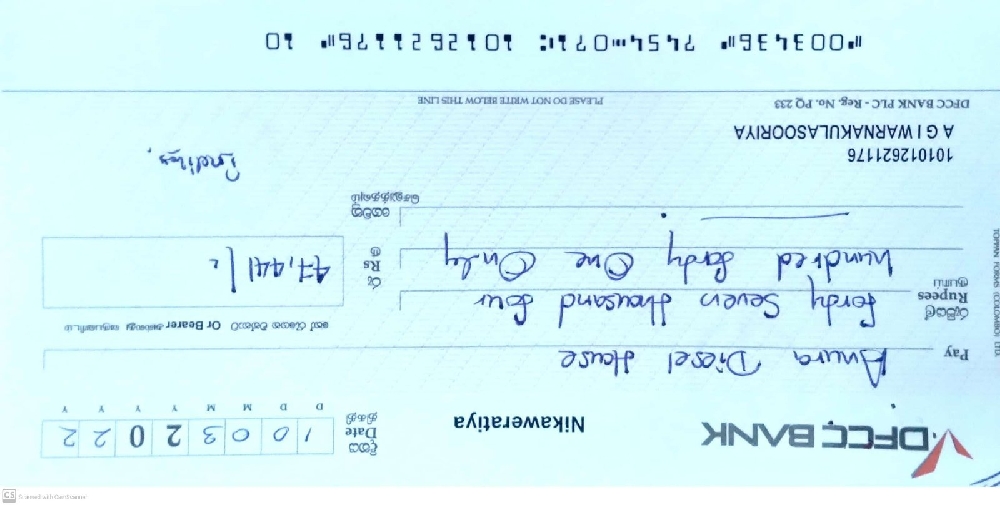 DFCC BANK
Nikaweratiya
දිනය
Date
திகதி
1 0 0 3 2 0 2 2
D D M M Y Y Y Y
Pay
Anura Diesel House
Or Bearer
රුපියල්
Rupees
ரூபாய்
fordy Seven thousand four
hundred fordy One Only
රු
Rs
ரூ
47,441/-
101012621176
A G I WARNAKULASOORIYA
DFCC BANK PLC - Reg. No. PQ 233
PLEASE DO NOT WRITE BELOW THIS LINE
⑈003436⑈ 7454⑉071⑆ 1012621176⑈ 10
TOPPAN FORMS (COLOMBO) LTD.
CS Scanned with CamScanner